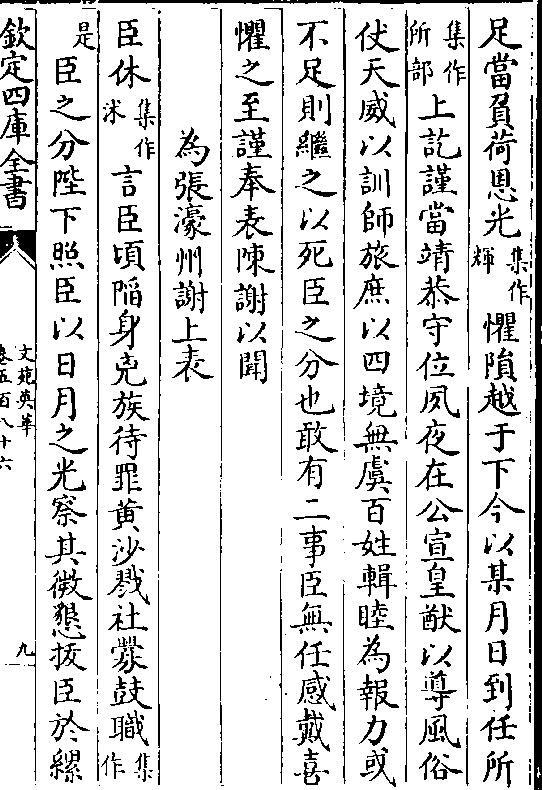 足當負荷恩光集作輝懼隕越于下今以某月日到任所
集作所部上訖謹當靖恭守位夙夜在公宣皇猷以導風俗
仗天威以訓師旅庶以四境無虞百姓輯睦為報力或
不足則繼之以死臣之分也敢有二事臣無任感戴喜
懼之至謹奉表陳謝以聞
為張濠州謝上表
臣休集作沭言臣頃䧟身兇族待罪黄沙戮社釁鼓職集作
是臣之分陛下照臣以日月之光察其微懇拔臣於縲
欽定四庫全書
文苑英華
卷五百八十六
九